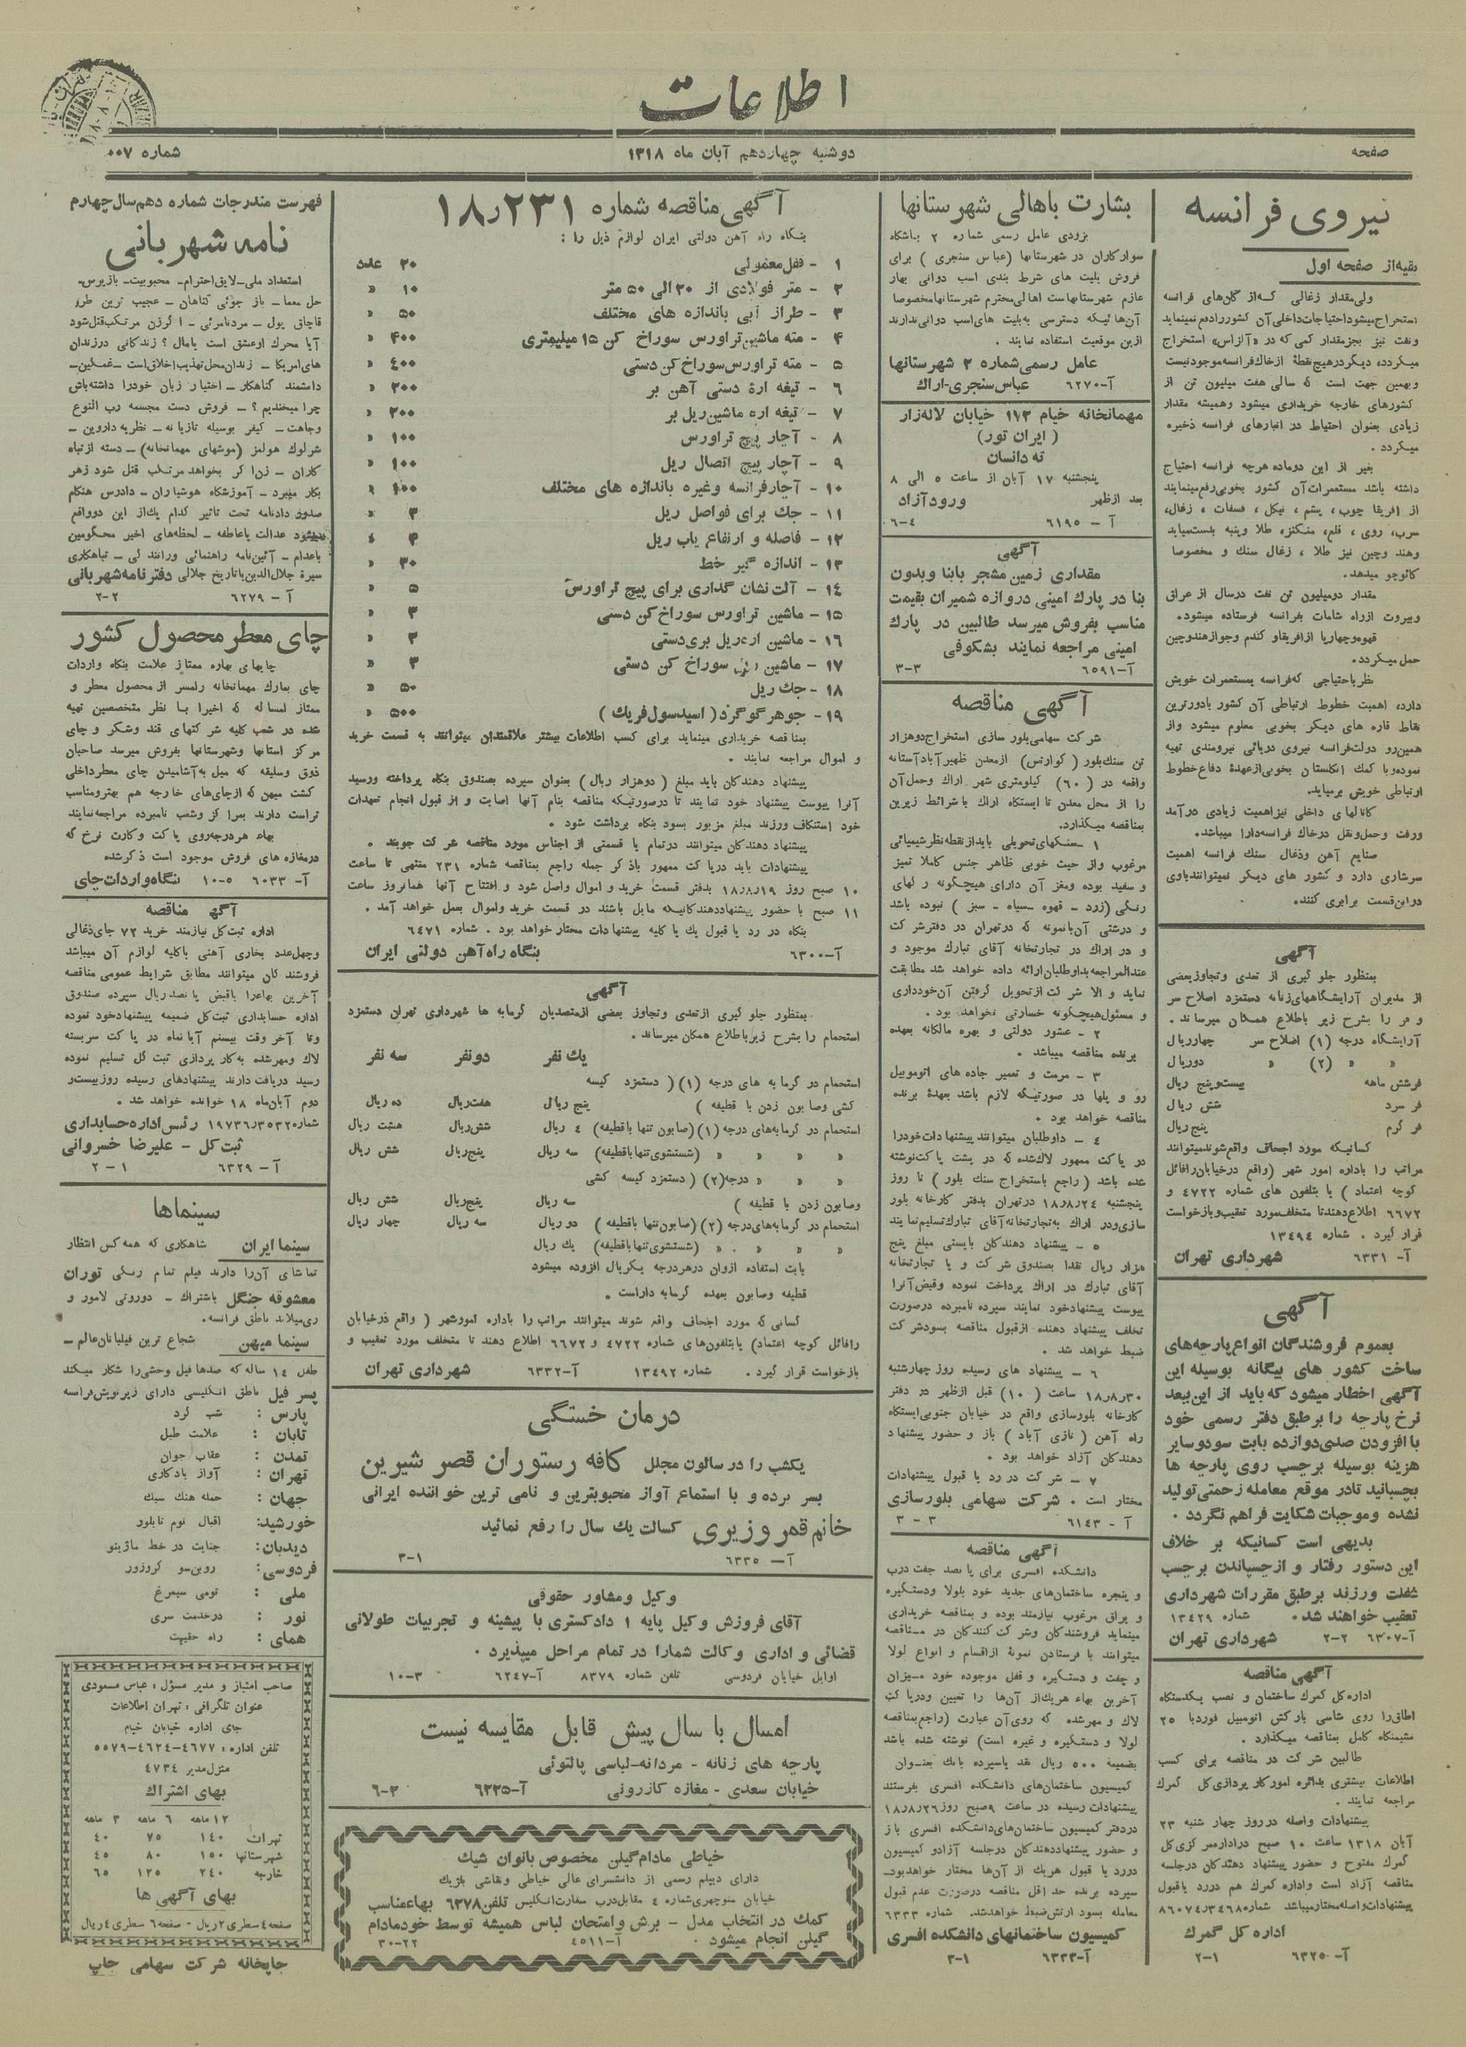 اطلاعات
صفحه
دوشنبه چهاردهم آبان ماه ۱۳۱۸
شماره ۰۰۷
نیروی فرانسه
بقیه از صفحه اول
ولی مقدار زغالی که از کان‌های فرانسه
استخراج میشود احتیاجات داخلی آن کشور را دفع نمینماید
و نفت نیز بجز مقدار کمی که در «آلزاس» استخراج
میگردد، دیگر در هیچ نقطهٔ از خاک فرانسه موجود نیست
و بهمین جهت است که سالی هفت میلیون تن از
کشورهای خارجه خریداری میشود و همیشه مقدار
زیادی بعنوان احتیاط در انبارهای فرانسه ذخیره
میگردد .
بغیر از این دو ماده هرچه فرانسه احتیاج
داشته باشد مستعمرات آن کشور بخوبی رفع مینمایند
از افریقا چوب، پشم، نیکل، فسفات، زغال،
سرب، روی، قلع، منگنز، طلا و پنبه بدست میاید
و هند و چین نیز طلا ، زغال سنگ و مخصوصا
کائوچو میدهد.
مقدار دو میلیون تن نفت در سال از عراق
و بیروت از راه شامات بفرانسه فرستاده میشود.
قهوه و چهارپا از افریقا و گندم و جو از هند و چین
حمل میگردد.
نظر باحتیاجی که فرانسه بمستعمرات خویش
دارد، اهمیت خطوط ارتباطی آن کشور با دورترین
نقاط قاره های دیگر بخوبی معلوم میشود و از
همین رو دولت فرانسه نیروی دریائی نیرومندی تهیه
نموده و با کمک انگلستان بخوبی از عهدهٔ دفاع خطوط
ارتباطی خویش برمیاید.
کانالهای داخلی نیز اهمیت زیادی در آمد
و رفت و حمل و نقل در خاک فرانسه دارا میباشد.
صنایع آهن و ذغال سنگ فرانسه اهمیت
سرشاری دارد و کشور های دیگر نمیتوانند با وی
در این قسمت برابری کنند.
آگهی
بمنظور جلو گیری از تعدی و تجاوز بعضی
از مدیران آرایشگاههای زنانه دستمزد اصلاح سر
و فر را بشرح زیر باطلاع همگان میرساند .
آرایشگاه درجه (۱) اصلاح سر چهار ریال
« « (۲) « دو ریال
فر شش ماهه بیست و پنج ریال
فر سرد شش ریال
فر گرم پنج ریال
کسانیکه مورد اجحاف واقع شوند میتوانند
مراتب را باداره امور شهر (واقع در خیابان رافائل
کوچه اعتماد ) یا بتلفون های شماره ۴۷۲۲ و
۶۶۷۲ اطلاع دهند تا متخلف مورد تعقیب و بازخواست
قرار گیرد . شماره ۱۳۴۹۴
آ- ۶۳۳۱ شهرداری تهران
آگهی
بعموم فروشندگان انواع پارچه‌های
ساخت کشور های بیگانه بوسیله این
آگهی اخطار میشود که باید از این ببعد
نرخ پارچه را بر طبق دفتر رسمی خود
با افزودن صدی دوازده بابت سود و سایر
هزینه بوسیله برچسب روی پارچه ها
بچسبانید تا در موقع معامله زحمتی تولید
نشده و موجبات شکایت فراهم نگردد .
بدیهی است کسانیکه بر خلاف
این دستور رفتار و از چسپاندن برچسب
غفلت ورزند بر طبق مقررات شهرداری
تعقیب خواهند شد. شماره ۱۳۴۲۹
آ-۶۳۰۷ ۲-۲ شهرداری تهران
آگهی مناقصه
اداره کل گمرک ساختمان و نصب یکدستگاه
اطاق را روی شاسی بارکش اتومبیل فورد با ۲۵
نشیمنگاه کامل بمناقصه میگذارد.
طالبین شرکت در مناقصه برای کسب
اطلاعات بیشتری بدائره امور کار پردازی کل گمرک
مراجعه نمایند .
پیشنهادات واصله در روز چهار شنبه ۲۳
آبان ۱۳۱۸ ساعت ۱۰ صبح در اداره مرکزی کل
گمرک مفتوح و حضور پیشنهاد دهندگان در جلسه
مناقصه آزاد است و اداره گمرک هم در رد یا قبول
پیشنهادات واصله مختار میباشد شماره ۸۶۰۷۴/۳۴۶۸
اداره کل گمرک
آ- ۶۳۲۵۰ ۲-۱
بشارت باهالی شهرستانها
بزودی عامل رسمی شماره ۲ باشگاه
سوارکاران در شهرستانها (عباس سنجری ) برای
فروش بلیت های شرط بندی اسب دوانی بهار
عازم شهرستانهاست اهالی محترم شهرستانها مخصوصا
آن‌ها ئیکه دسترسی به بلیت های اسب دوانی ندارند
از این موقعیت استفاده نمایند .
عامل رسمی شماره ۲ شهرستانها
آ-۶۲۷۰ عباس سنجری-اراک
مهمانخانه خیام ۱۷۳ خیابان لاله‌زار
(ایران تور)
ته دانسان
پنجشنبه ۱۷ آبان از ساعت ۵ الی ۸
بعد از ظهر ورود آزاد
آ – ۶۱۹۵ ۶-۴
آگهی
مقداری زمین مشجر با بنا و بدون
بنا در پارک امینی دروازه شمیران بقیمت
مناسب بفروش میرسد طالبین در پارک
امینی مراجعه نمایند بشکوفی
آ-۶۵۹۱ ۳-۳
آگهی مناقصه
شرکت سهامی بلور سازی استخراج دو هزار
تن سنک بلور (کوارتس) از معدن ظهیر آباد آستانه
واقعه در (۶۰) کیلومتری شهر اراک و حمل آن
را از محل معدن تا ایستگاه اراک با شرائط زیرین
بمناقصه میگذارد.
۱ –سنگهای تحویلی باید از نقطه نظر شیمیائی
مرغوب و از حیث خوبی ظاهر جنس کاملا تمیز
و سفید بوده و مغز آن دارای هیچگونه رگهای
رنگی (زرد – قهوه –سیاه – سبز ) نبوده باشد
و درشتی آن با نمونه که در تهران در دفتر شرکت
و در اراک در تجارتخانه آقای تبارک موجود و
عند المراجعه بداوطلبان ارائه داده خواهد شد مطابقت
نماید و الا شرکت از تحویل گرفتن آن خودداری
و مسئول هیچگونه خسارتی نخواهد بود.
۲ – عشور دولتی و بهره مالکانه بعهده
برنده مناقصه میباشد .
۳ – مرمت و تعمیر جاده های اتوموبیل
رو و پلها در صورتیکه لازم باشد بعهدهٔ برنده
مناقصه خواهد بود .
۴ – داوطلبان میتوانند پیشنهادات خود را
در پاکت ممهور لاک شده که در پشت پاکت نوشته
شده باشد ( راجع باستخراج سنگ بلور ) تا روز
پنجشنبه ۱۸/۸/۲۴ در تهران بدفتر کارخانه بلور
سازی و در اراک به تجارتخانه آقای تبارک تسلیم نمایند
۵ – پیشنهاد دهندگان بایستی مبلغ پنج
هزار ریال نقدا بصندوق شرکت و یا تجارتخانه
آقای تبارک در اراک پرداخت نموده و قبض آنرا
پیوست پیشنهاد خود نمایند سپرده نامبرده در صورت
تخلف پیشنهاد دهنده از قبول مناقصه بسود شرکت
ضبط خواهد شد .
۶ – پیشنهاد های رسیده روز چهارشنبه
۱۸/۸/۳۰ ساعت (۱۰) قبل از ظهر در دفتر
کارخانه بلورسازی واقع در خیابان جنوبی ایستگاه
راه آهن (نازی آباد ) باز و حضور پیشنهاد
دهندگان آزاد خواهد بود .
۷ – شرکت در رد یا قبول پیشنهادات
مختار است . شرکت سهامی بلورسازی
آ – ۶۱۴۳ ۳ – ۳
آگهی مناقصه
دانشکده افسری برای پانصد جفت درب
و پنجره ساختمان‌های جدید خود بلولا و دستگیره
و یراق مرغوب نیازمند بوده و بمناقصه خریداری
مینماید فروشندگان و شرکت کنندگان در مناقصه
میتوانند با فرستادن نمونهٔ از اقسام و انواع لولا
و چفت و دستگیره و قفل موجوده خود میزان
آخرین بهاء هریک از آن‌ها را تعیین و در پاکت
لاک و مهر شده که روی آن عبارت (راجع بمناقصه
لولا و دستگیره و غیره است) نوشته شده باشد
بضمیمه ۵۰۰ ریال نقد یا سپرده بانک بعنوان
کمیسیون ساختمان‌های دانشکده افسری بفرستند
پیشنهادات رسیده در ساعت ۹ صبح روز ۱۸/۸/۲۶
در دفتر کمیسیون ساختمان‌های دانشکده افسری باز
و حضور پیشنهاد دهندگان در جلسه آزاد و کمیسیون
در رد یا قبول هریک از آن‌ها مختار خواهد بود-
سپرده برنده حداقل مناقصه در صورت عدم قبول
معامله بسود ارتش ضبط خواهد شد. شماره ۶۳۳۳
کمیسیون ساختمانهای دانشکده افسری
آ-۶۳۳۳ ۳-۱
آگهی مناقصه شماره ۱۸٫۲۳۱
بنگاه راه آهن دولتی ایران لوازم ذیل را :
۱ – قفل معمولی ۲۰ عدد
۲ – متر فولادی از ۲۰ الی ۵۰ متر ۱۰ «
۳ – طراز آبی باندازه های مختلف ۵۰ «
۴ – مته ماشین تراورس سوراخ کن ۱۵ میلیمتری ۴۰۰ «
۵ – مته تراورس سوراخ کن دستی ۴۰۰ «
۶ – تیغه ارهٔ دستی آهن بر ۲۰۰ «
۷ – تیغه اره ماشین ریل بر ۲۰۰ «
۸ – آچار پیچ تراورس ۱۰۰ «
۹ – آچار پیچ اتصال ریل ۱۰۰ «
۱۰ – آچار فرانسه و غیره باندازه های مختلف ۱۰۰ «
۱۱ – جک برای فواصل ریل ۳ «
۱۲ – فاصله و ارتفاع یاب ریل ۴ «
۱۳ – اندازه گیر خط ۳۰ «
۱۴ – آلت نشان گذاری برای پیچ تراورس ۵ «
۱۵ – ماشین تراورس سوراخ کن دستی ۳ «
۱۶ – ماشین اره ریل بری دستی ۳ «
۱۷ – ماشین ریل سوراخ کن دستی ۳ «
۱۸ – جک ریل ۵۰ «
۱۹ – جوهر گوگرد ( اسید سولفریک ) ۵۰۰ «
بمناقصه خریداری مینماید برای کسب اطلاعات بیشتر علاقمندان میتوانند به قسمت خرید
و اموال مراجعه نمایند .
پیشنهاد دهندگان باید مبلغ (دو هزار ریال) بعنوان سپرده بصندوق بنگاه پرداخته و رسید
آنرا پیوست پیشنهاد خود نمایند تا در صورتیکه مناقصه بنام آنها اصابت و از قبول انجام تعهدات
خود استنکاف ورزند مبلغ مزبور بسود بنگاه برداشت شود .
پیشنهاد دهندگان میتوانند در تمام یا قسمتی از اجناس مورد مناقصه شرکت جویند .
پیشنهادات باید در پاکت ممهور با ذکر جمله راجع بمناقصه شماره ۲۳۱ منتهی تا ساعت
۱۰ صبح روز ۱۸/۸/۱۹ بدفتر قسمت خرید و اموال واصل شود و افتتاح آنها همانروز ساعت
۱۱ صبح با حضور پیشنهاد دهندگانیکه مایل باشند در قسمت خرید و اموال بعمل خواهد آمد .
بنگاه در رد یا قبول یک یا کلیه پیشنهادات مختار خواهد بود . شماره ۶۴۷۱
آ-۶۳۰۰ بنگاه راه آهن دولتی ایران
آگهی
بمنظور جلو گیری از تعدی و تجاوز بعضی از متصدیان گرمابه ها شهرداری تهران دستمزد
استحمام را بشرح زیر باطلاع همگان میرساند.
یک نفر دو نفر سه نفر
استحمام در گرمابه های درجه (۱) ( دستمزد کیسه
کشی و صابون زدن با قطیفه ) پنج ریال هفت ریال ده ریال
استحمام در گرمابه‌های درجه (۱) (صابون تنها با قطیفه) ۴ ریال شش ریال هشت ریال
« « « « (شستشوی تنها با قطیفه) سه ریال پنج ریال شش ریال
« « « درجه (۲) ( دستمزد کیسه کشی
و صابون زدن با قطیفه ) سه ریال پنج ریال شش ریال
استحمام در گرمابه‌های درجه (۲) (صابون تنها با قطیفه) دو ریال سه ریال چهار ریال
« « « « (شستشوی تنها با قطیفه) یک ریال
بابت استفاده از وان در هر درجه یکریال افزوده میشود
قطیفه و صابون بعهده گرمابه دار است.
کسانی که مورد اجحاف واقع شوند میتوانند مراتب را باداره امور شهر ( واقع در خیابان
رافائل کوچه اعتماد) یا بتلفون‌های شماره ۴۷۲۲ و ۶۶۷۲ اطلاع دهند تا متخلف مورد تعقیب و
بازخواست قرار گیرد . شماره ۱۳۴۹۲ آ-۶۳۳۲ شهرداری تهران
درمان خستگی
یکشب را در سالون مجلل کافه رستوران قصر شیرین
بسر برده و با استماع آواز محبوبترین و نامی ترین خواننده ایرانی
خانم قمر وزیری کسالت یک سال را رفع نمائید
آ— ۶۳۳۵ ۳-۱
وکیل و مشاور حقوقی
آقای فروزش وکیل پایه ۱ دادگستری با پیشینه و تجربیات طولانی
قضائی و اداری وکالت شما را در تمام مراحل میپذیرد .
اوایل خیابان فردوسی تلفن شماره ۸۳۷۹ آ-۶۲۴۷ ۱۰-۳
امسال با سال پیش قابل مقایسه نیست
پارچه های زنانه - مردانه-لباسی پالتوئی
خیابان سعدی - مغازه کازرونی آ-۶۲۲۵ ۶-۲
خیاطی مادام گیلن مخصوص بانوان شیک
دارای دیپلم رسمی از دانشسرای عالی خیاطی و نقاشی بلژیک
خیابان منوچهری شماره ۴ مقابل درب سفارت انگلیس تلفن ۶۳۷۸ بهاء مناسب
کمک در انتخاب مدل – برش و امتحان لباس همیشه توسط خود مادام
گیلن انجام میشود . آ-۴۵۱۱ ۳۰-۲۲
فهرست مندرجات شماره دهم سال چهارم
نامه شهربانی
استعداد ملی-لایق احترام- محبوبیت- بازپرس-
حل معما- باز جوئی گناهان – عجیب ترین طرز
قاچاق پول – مرد نامرئی – اگر زن مرتکب قتل شود
آیا محرک او عشق است یا مال؟ زندگانی در زندان
های امریکا – زندان محل تهذیب اخلاق است –غمگین–
دانشمند گناهکار – اختیار زبان خود را داشته باش
چرا میخندیم ؟ – فروش دست مجسمه رب النوع
وجاهت – کیفر بوسیله تازیانه – نظریه داروین –
شرلوک هولمز (موشهای مهمانخانه)– دسته از تباه
کاران – زن اگر بخواهد مرتکب قتل شود زهر
بکار میبرد – آموزشگاه هوشیاران – دادرس هنگام
صدور دادنامه تحت تاثیر کدام یک از این دو واقع
میشود عدالت یا عاطفه – لحظه‌های اخیر محکومین
باعدام – آئین نامه راهنمائی و رانندگی – تباهکاری
سیرهٔ جلال‌الدین یا تاریخ جلالی دفتر نامه شهربانی
آ – ۶۲۷۹ ۲-۲
چای معطر محصول کشور
چایهای بهاره ممتاز علامت بنگاه واردات
چای بمارک مهمانخانه رامسر از محصول معطر و
ممتاز امساله که اخیرا با نظر متخصصین تهیه
شده در شعب کلیه شرکتهای قند و شکر و چای
مرکز استانها و شهرستانها بفروش میرسد صاحبان
ذوق و سلیقه که میل به آشامیدن چای معطر داخلی
کشت میهن که از چای‌های خارجه هم بهتر و مناسب
تر است دارند بمراکز و شعب نامبرده مراجعه نمایند
بهاء هر درجه روی پاکت و کارت نرخ که
در مغازه های فروش موجود است ذکر شده
آ- ۶۰۳۳ ۱۰-۵ بنگاه واردات چای
آگهی مناقصه
اداره ثبت کل نیازمند خرید ۷۲ جای ذغالی
و چهل عدد بخاری آهنی با کلیه لوازم آن میباشد
فروشندگان میتوانند مطابق شرایط عمومی مناقصه
آخرین بهاء را با قبض پانصد ریال سپرده صندوق
اداره حسابداری ثبت کل ضمیمه پیشنهاد خود نموده
و تا آخر وقت بیستم آبانماه در پاکت سربسته
لاک و مهر شده به کار پردازی ثبت کل تسلیم نموده
رسید دریافت دارند پیشنهادهای رسیده روز بیست و
دوم آبان ماه ۱۸ خوانده خواهد شد .
شماره ۱۹۷۳۶/۳۵۳۲ رئیس اداره حسابداری
ثبت کل – علیرضا خسروانی
آ – ۶۳۲۹ ۲ – ۱
سینماها
سینما ایران شاهکاری که همه کس انتظار
تماشای آن‌را دارند فیلم تمام رنگی توران
معشوقه جنگل باشتراک – دوروتی لامور و
ری میلاند ناطق فرانسه.
سینما میهن شجاع ترین فیلبانان عالم –
طفل ۱۴ ساله که صدها فیل وحشی را شکار میکند
پسر فیل ناطق انگلیسی دارای زیرنویش فرانسه
پارس : شب گرد
تابان : علامت طبل
تمدن : عقاب جوان
تهران : آواز یادگاری
جهان : حمله هنگ سبک
خورشید: اقبال نوم تایلور
دیدبان: جنایت در خط ماژینو
فردوسی: روبن‌سو کروزور
ملی : تومی سیمرغ
نور : در خدمت سری
همای : راه حقیقت
صاحب امتیاز و مدیر مسؤل : عباس مسعودی
عنوان تلگرافی : تهران اطلاعات
جای اداره خیابان خیام
تلفن اداره : ۴۶۷۷-۴۶۲۴-۵۵۷۹
منزل مدیر ۴۷۳۴
بهای اشتراک
۱۲ ماهه ۶ ماهه ۳ ماهه
تهران ۱۴۰ ۷۵ ۴۰
شهرستانها ۱۵۰ ۸۰ ۴۵
خارجه ۲۴۰ ۱۲۵ ۶۵
بهای آگهی ها
صفحه ۴ سطری ۲ ریال - صفحه ۶ سطری ۴ ریال
چاپخانه شرکت سهامی چاپ